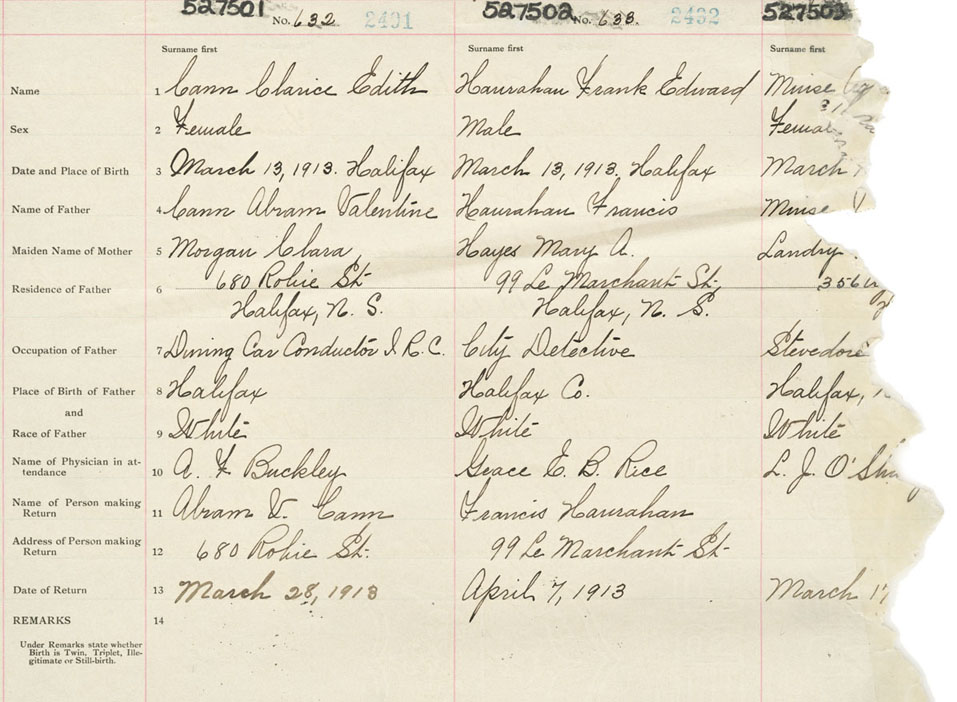 527501 No. 632 2431 527502 No. 633. 2432 527503
Surname first Surname first Surname first
Name 1 Cann Clarice Edith Hanrahan Frank Edward
Sex 2 Female Male Fema
Date and Place of Birth 3 March 13, 1913. Halifax March 13, 1913. Halifax March
Name of Father 4 Cann Abram Valentine Hanrahan Francis
Maiden Name of Mother 5 Morgan Clara Hayes Mary A. Landry
Residence of Father 6 680 Robie St. 99 Le Marchant St. 356
Halifax, N. S. Halifax, N. S.
Occupation of Father 7 Dining Car Conductor I. R. C. City Detective Stevedore
Place of Birth of Father 8 Halifax Halifax Co. Halifax,
and
Race of Father 9 White White White
Name of Physician in at-
tendance 10 A. F Buckley Grace E. B. Rice L. J. O'Sh
Name of Person making
Return 11 Abram V. Cann Francis Hanrahan
Address of Person making
Return 12 680 Robie St. 99 Le Marchant St
Date of Return 13 March 28, 1913 April 7, 1913 March 17
REMARKS 14
Under Remarks state whether
Birth is Twin, Triplet, Ille-
gitimate or Still-birth.